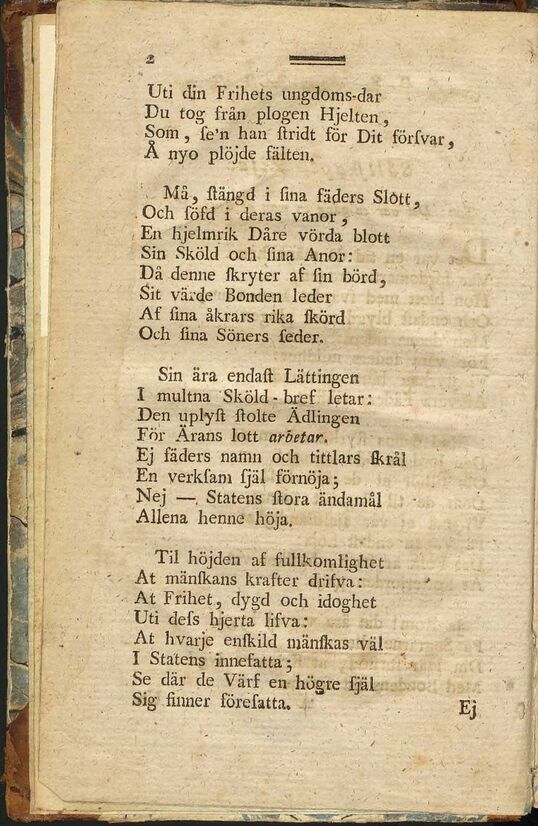 2
Uti din Frihets ungdoms-dar
Du tog från plogen Hjelten,
Som, ſe'n han ſtridt för Dit förſvar,
Å nyo plöjde fälten.
Må, ſtängd i ſina fäders Slött,
Och ſöfd i deras vanor,
En hjelmrik Dåre vörda blott
Sin Sköld och ſina Anor:
Då denne ſkryter af ſin börd,
Sit värde Bonden leder
Af ſina åkrars rika ſkörd
Och ſina Söners ſeder.
Sin ära endaſt Lättingen
I multna Sköld-bref letar:
Den uplyſt ſtolte Ädlingen
För Ärans lott arbetar.
Ej fäders namn och tittlars ſkrål
En verkſam ſjäl förnöja;
Nej —. Statens ſtora ändamål
Allena henne höja.
Til höjden af fullkomlighet
At mänſkans krafter drifva:
At Frihet, dygd och idoghet
Uti deſs hjerta lifva:
At hvarje enſkild mänſkas väl
I Statens innefatta;
Se där de Värf en högre ſjäl
Sig finner föreſatta.
Ej